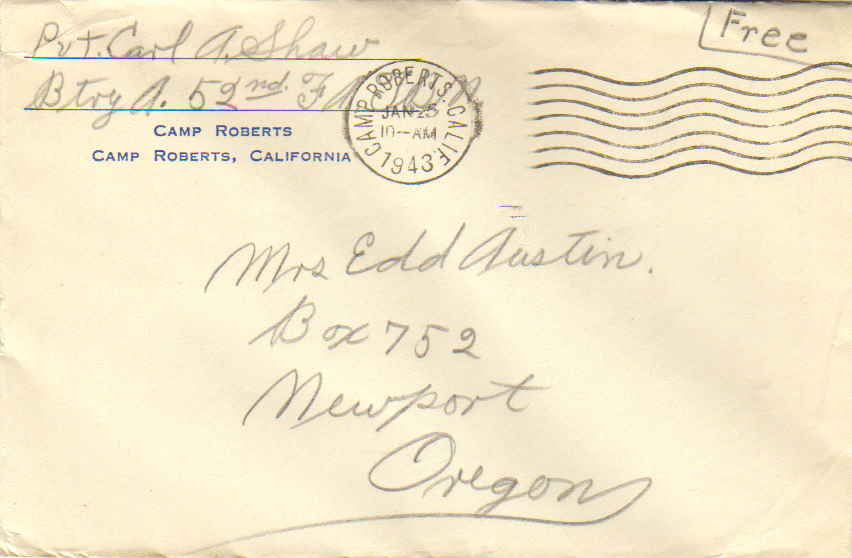 Pvt. Carl A. Shaw
Btry A. 52nd. F A
CAMP ROBERTS
CAMP ROBERTS, CALIFORNIA
CAMP ROBERTS. CALIF.
JAN 25
10-AM
1943
Free
Mrs Edd Austin.
Box 752
Newport
Oregon